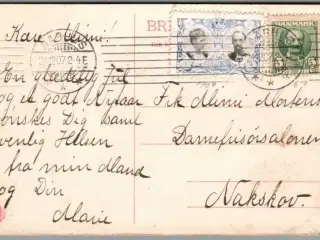 BR
Kære Mimi!
En glædelig Jul
og et godt Nytaar
ønskes Dig samt
venlig Hilsen
fra min Mand
og Din
Marie
Frk Mimi Mortens
Damefrisørsalonen
Nakskov.
DANMARK
5